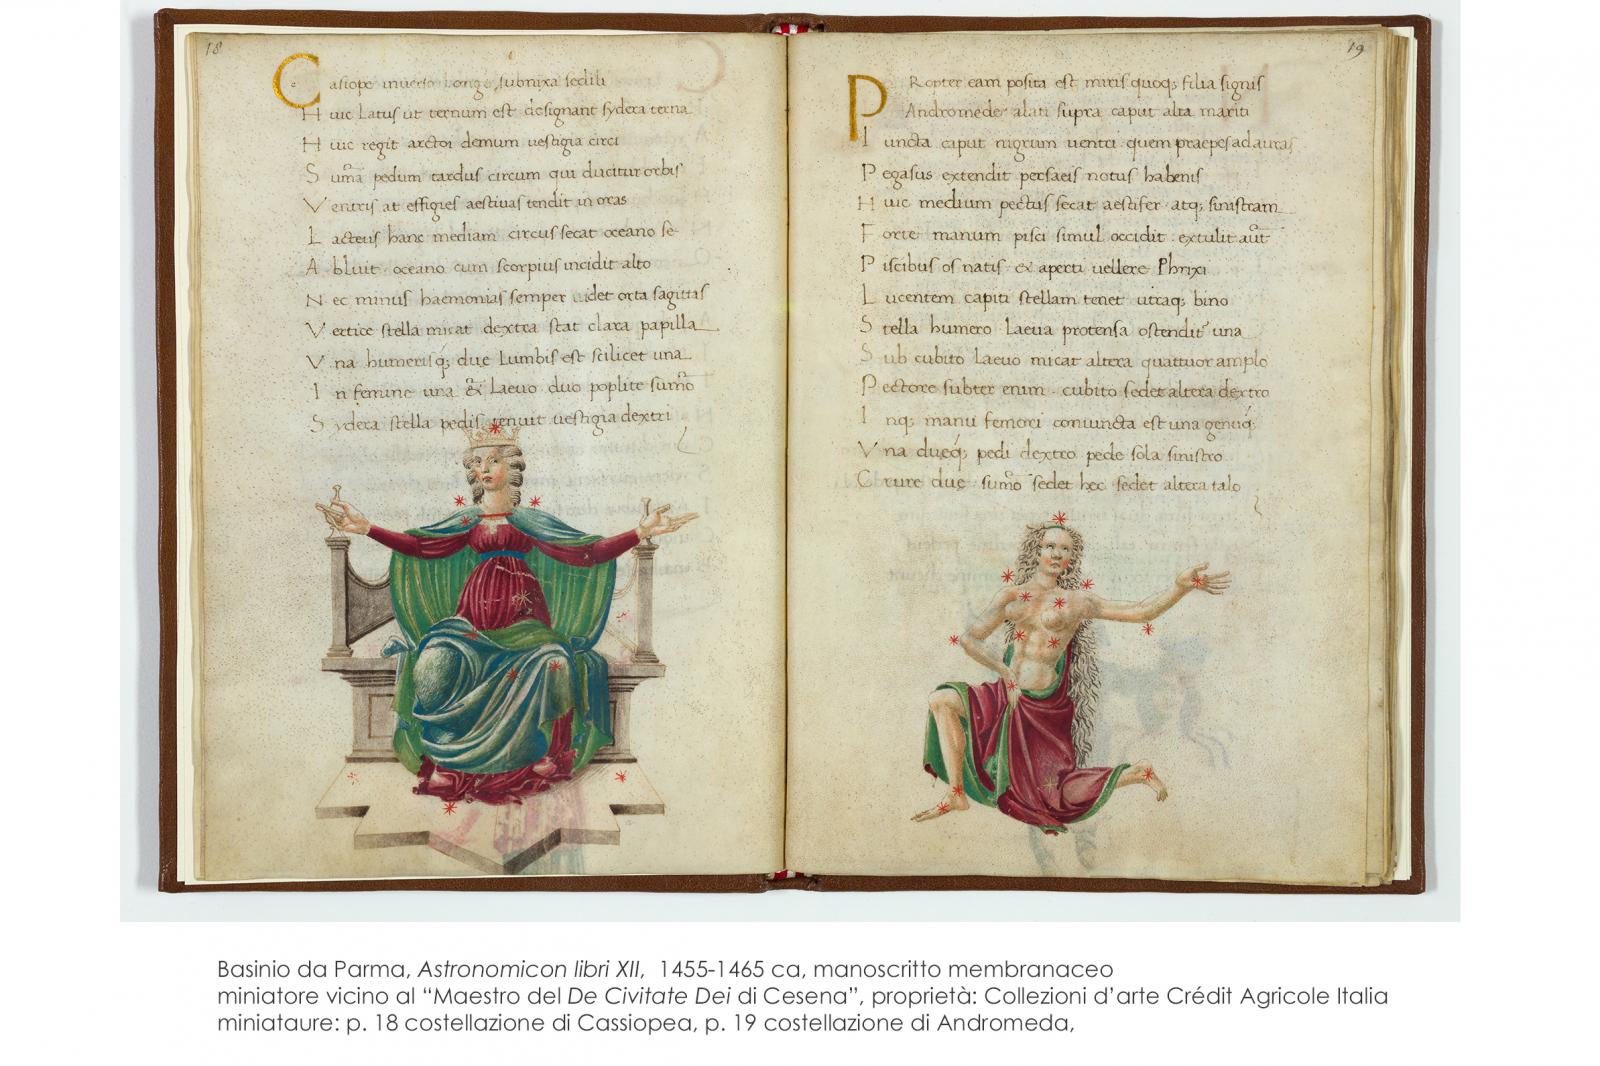 18
Casiope inuerso longe subnixa sedili
Huic Latus ut ternum est designant sydera terna
Huic regit arctoi demum uestigia circi
Suma pedum tardus circum qui ducitur orbis
Ventris at effigies aestiuas tendit in oras
Lacteus hanc mediam circus secat oceano se-
Abluit oceano cum scorpius incidit alto
Nec minus haemonias semper uidet orta sagittas
Vertice stella micat dextra stat clara papilla
Vna humerisq; due Lumbis est scilicet una
In femine una Laeuo duo poplite sumo
Sydera stella pedis tenuit uestigia dextri
19
PRopter eam posita est miris quoq; filia signis
Andromede alati supra caput alta mariti
Iuncta caput nigrum uentri quem praepes ad auras
Pegasus extendit persaeis notus habenis
Huic medium pectus secat aestifer atq; sinistram
Forte manum pisci simul occidit extulit aut
Piscibus os natis ex aperti uellere Phrixi
Lucentem capiti stellam tenet utraq; bino
Stella humero Laeua protensa ostendit una
Sub cubito Laeuo micat altera quattuor amplo
Pectore subter enim cubito sedet altera dextro
Inq; manu femori coniuncta est una genuq;
Vna dueq; pedi dextro pede sola sinistro
Crure due sumo sedet hec sedet altera talo
Basinio da Parma, Astronomicon libri XII, 1455-1465 ca, manoscritto membranaceo
miniatore vicino al “Maestro del De Civitate Dei di Cesena”, proprietà: Collezioni d’arte Crédit Agricole Italia
miniataure: p. 18 costellazione di Cassiopea, p. 19 costellazione di Andromeda,